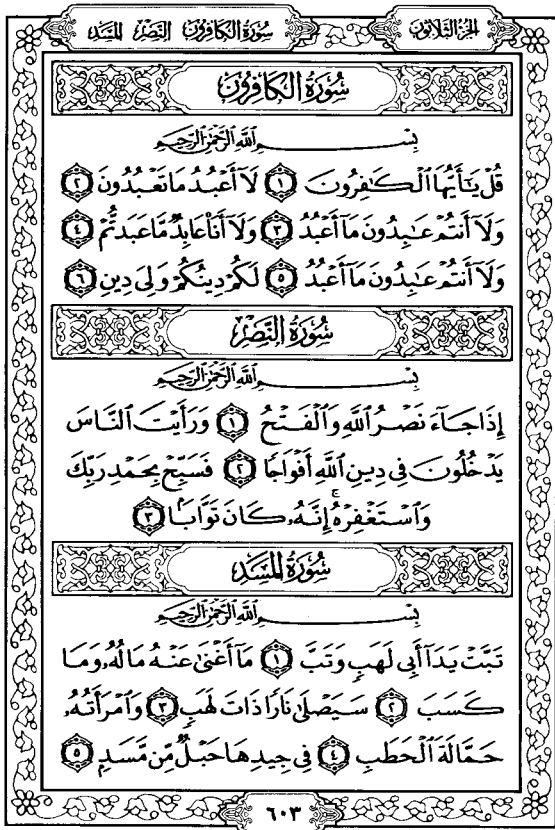 الجزء الثلاثون
سورة الكافرون النصر المسد
سُورَةُ الْكَافِرُونَ
بِسْمِ اللَّهِ الرَّحْمَٰنِ الرَّحِيمِ
قُلْ يَٰٓأَيُّهَا ٱلْكَٰفِرُونَ ١ لَآ أَعْبُدُ مَا تَعْبُدُونَ ٢
وَلَآ أَنتُمْ عَٰبِدُونَ مَآ أَعْبُدُ ٣ وَلَآ أَنَا۠ عَابِدٌ مَّا عَبَدتُّمْ ٤
وَلَآ أَنتُمْ عَٰبِدُونَ مَآ أَعْبُدُ ٥ لَكُمْ دِينُكُمْ وَلِىَ دِينِ ٦
سُورَةُ النَّصْرِ
بِسْمِ اللَّهِ الرَّحْمَٰنِ الرَّحِيمِ
إِذَا جَآءَ نَصْرُ ٱللَّهِ وَٱلْفَتْحُ ١ وَرَأَيْتَ ٱلنَّاسَ
يَدْخُلُونَ فِى دِينِ ٱللَّهِ أَفْوَاجًا ٢ فَسَبِّحْ بِحَمْدِ رَبِّكَ
وَٱسْتَغْفِرْهُ ۚ إِنَّهُۥ كَانَ تَوَّابًۢا ٣
سُورَةُ الْمَسَدِ
بِسْمِ اللَّهِ الرَّحْمَٰنِ الرَّحِيمِ
تَبَّتْ يَدَآ أَبِى لَهَبٍ وَتَبَّ ١ مَآ أَغْنَىٰ عَنْهُ مَالُهُۥ وَمَا
كَسَبَ ٢ سَيَصْلَىٰ نَارًا ذَاتَ لَهَبٍ ٣ وَٱمْرَأَتُهُۥ
حَمَّالَةَ ٱلْحَطَبِ ٤ فِى جِيدِهَا حَبْلٌ مِّن مَّسَدٍۭ ٥
٦٠٣